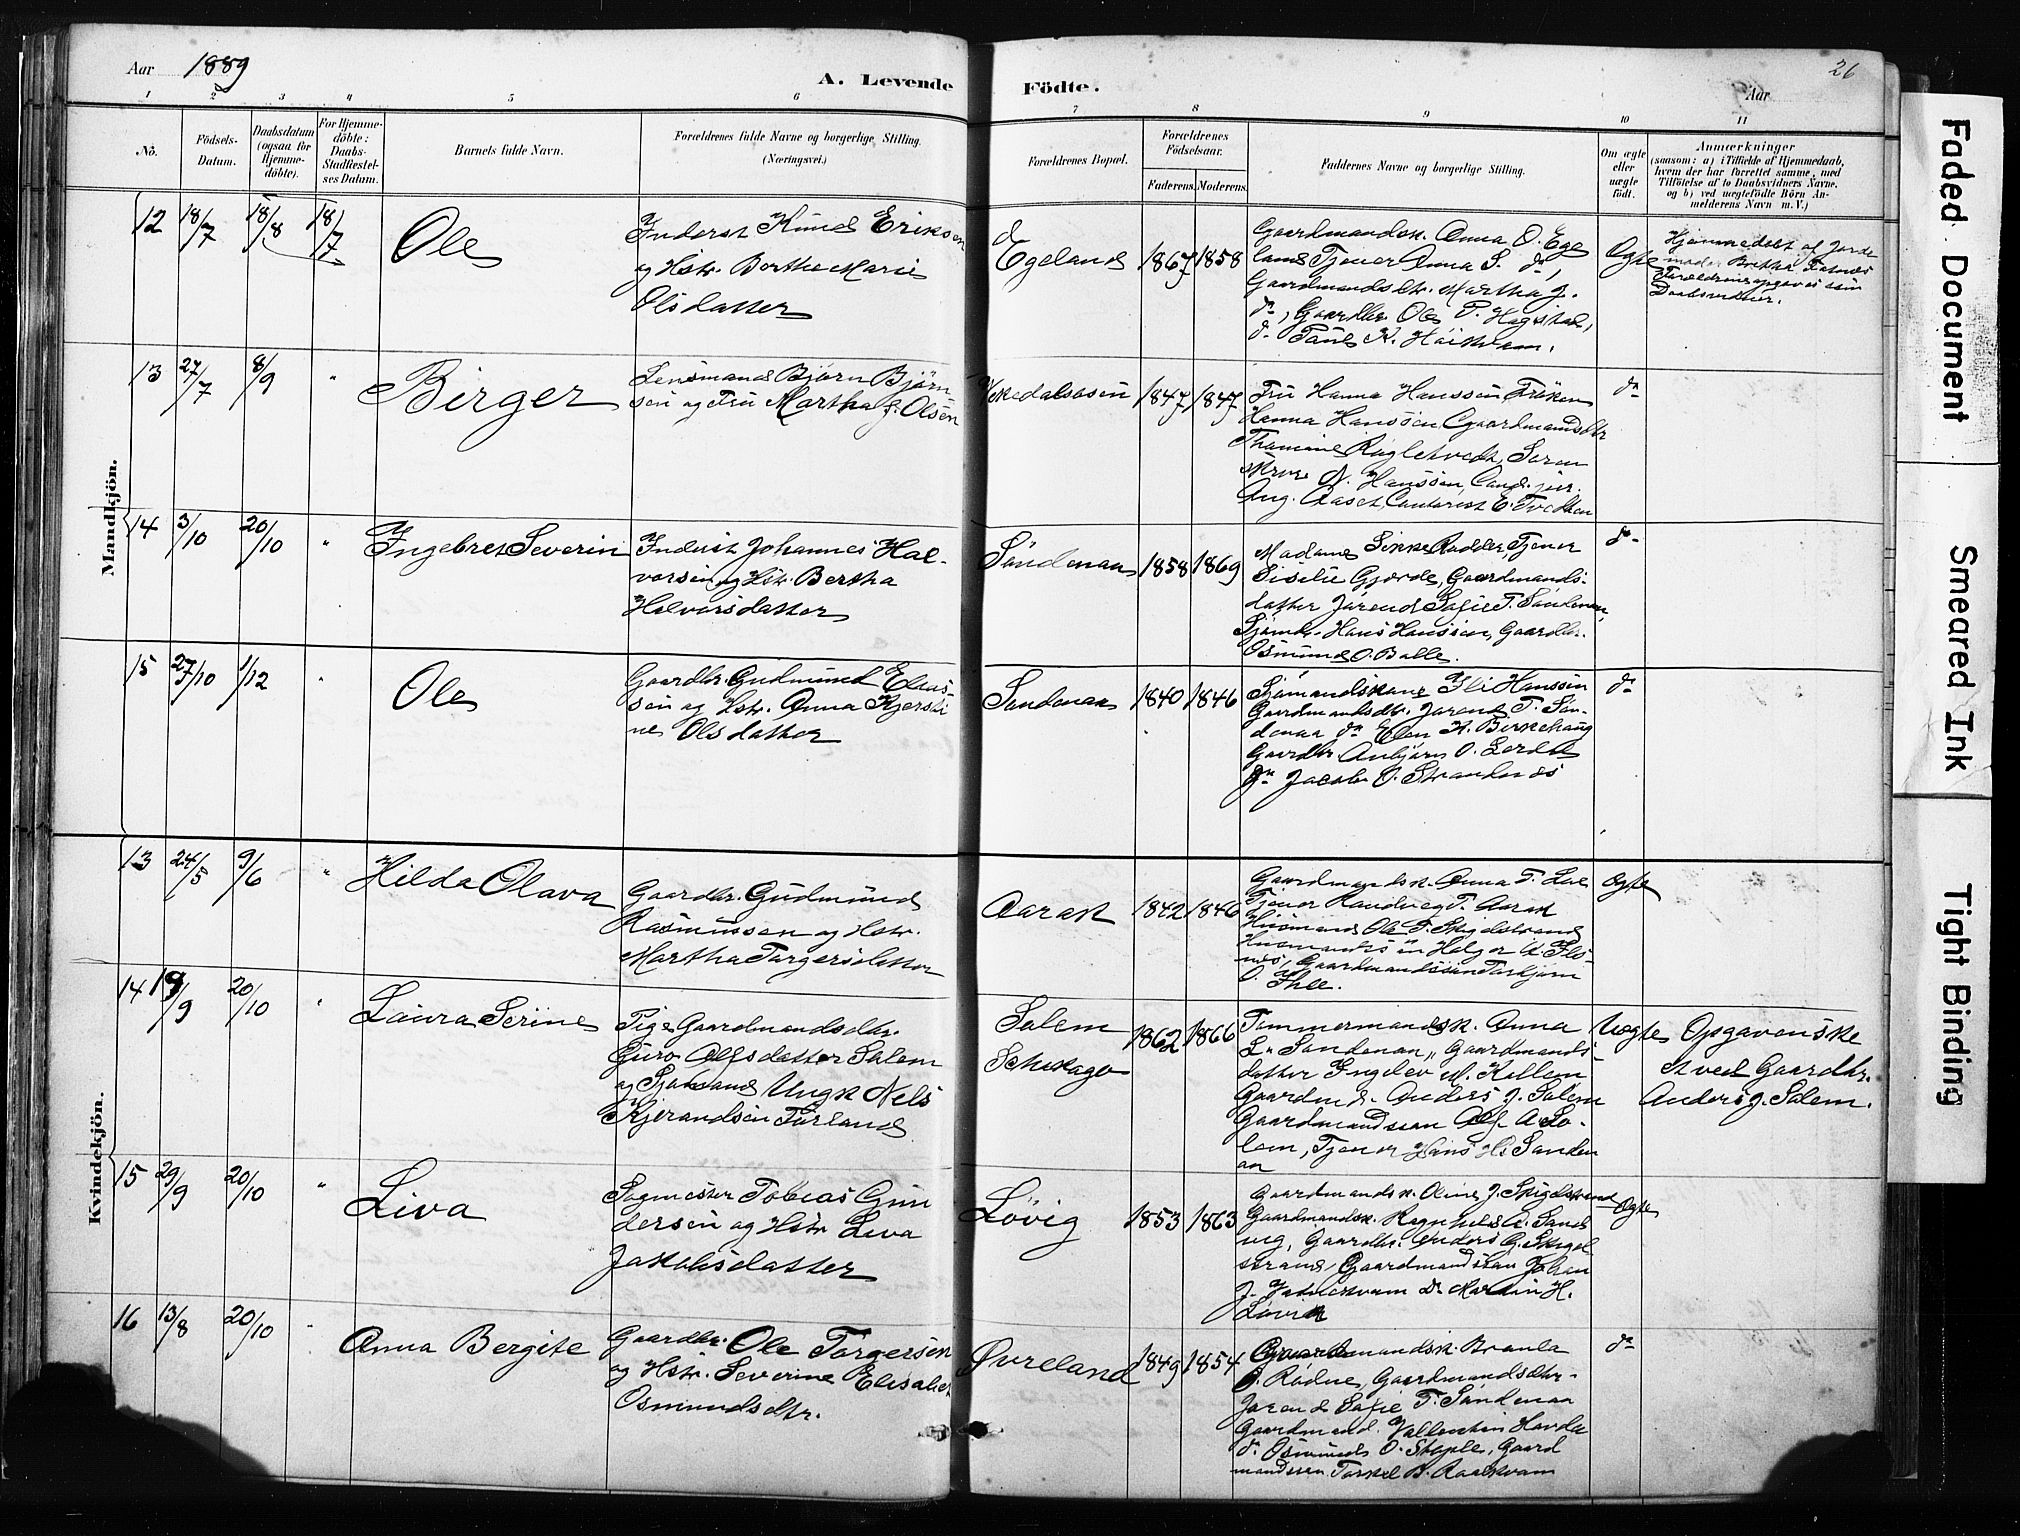 Aar 1889
A. Levende
Födte.
26
Aar
1 2 3 4 5 6 7 8 9 10 11
No.
Födsels-
Datum.
Daabsdatum
(ogsaa for
Hjemme-
döbte).
For Hjemme-
döbte:
Daabs-
Stadfæstel-
ses Datum.
Barnets fulde Navn.
Forældrenes fulde Navne og borgerlige Stilling.
(Næringsvei.)
Forældrenes Bopæl.
Forældrenes
Födselsaar.
Faderens. Moderens.
Faddernes Navne og borgerlige Stilling.
Om ægte
eller
uægte
født.
Anmærkninger
(saasom: a) i Tilfælde af Hjemmedaab,
hvem der har forrettet samme, med
Tilföielse af to Daabsvidners Navne,
og b) ved uægtefödte Börn An-
melderens Navn m. V.)
Mandkjön.
12 18/7 18/8 18/7 Ole
Inderst Knud Eriksen
og Hstr. Berthe Marie
Olsdatter
Egeland 1867 1858
Gaardmandsk. Anna O. Ege
land Tjener Anna S. do,
Gaardmandsdtr. Martha J.
do, Gaardbr. Ole P. Hogstad,
Ægte
Hjemmedøbt af Jorde
13 27/7 8/9 " Birger
Lensmand Bjørn Bjørn
sen og Fru Martha f. Olsen
Vikedalsosen 1847 1847
Fru Hanna Hanssen, Frøken
Hanna Hanssen Gaardmandsdtr
Thomine Rogletvedt, Soren
skriver N. Hanssen, Cand. jur.
Aug. Aaset, Contorist E. Tvedten
do
14 3/10 20/10 " Ingebret Severin
Inderst Johannes Hal-
vorsen og Hstr. Bertha
Halvorsdatter
Søndenaa 1858 1869
Madame Sikke Rødder, Tjener
Siselie Gjerde, Gaardmands-
datter Jorend Sofie T. Søndenaa,
Sjømd. Hans Hanssen, Gaardbr.
Osmund O. Balle.
do
15 27/10 1/12 " Ole
Gaardbr. Gudmund Elias-
sen og Hstr. Anna Kjersti
ne Olsdatter
Søndenaa 1840 1846
Sjømandskone Hanssen
Gaardmandsdtr. Jorend T. Søn-
denaa do Elen H. Birkehaug
Gaardbr. Anbjørn O.
do Jacob O. Strandenes
do
Kvindekjön.
13 24/5 9/6 " Hilda Olava
Gaardbr. Gudmund
Rasmussen og Hstr.
Martha Torgersdatter
Aarak 1842 1846
Gaardmandsk. Anna T.
Tjener Randveg T. Aarak
Husmand Ole T. Skigelstrand
Gaardmandssøn Torbjørn
O. Ihle.
Ægte
14 19/9 20/10 " Laura Serine
Pige Gaardmandsdtr.
Guro Alfsdatter Salem
og Sjømand Ungk. Nels
Kjerandsen Førland
Salem
Schikago
1862 1866
Tømmermandsk. Anna
L. Søndenaa, Gaardmands-
datter Ingelev N. Kallem
Gaardmd. Anders J. Salem
Gaardmandssøn Alf A. Sa-
lem, Tjener Hans H. Sønden
aa
Uægte
Opgaven ske
et ved Gaardbr.
Anders J. Salem.
15 29/9 20/10 " Liva
Sagmester Tobias Gun
dersen og Hstr. Liva
Jakobsdatter
Løvig 1853 1863
Gaardmandsk. Oline J. Skigelstrand
Gaardmandsk. Ragnhild A. Sand
vig, Gaardbr. Anders G. Skigel
strand, Gaardmandssøn Johan
J. do Martin H.
Løvik
Ægte
16 13/8 20/10 " Anna Bergite
Gaardbr. Ole Torgersen
og Hstr. Severine Elisabet
Osmundsdtr.
Øvreland 1849 1854
Gaardmandsk. Branla
Rødne, Gaardmandsdtr.
Jorend Sofie T. Søndenaa
Gaardmand. Vallentin Hovda
do Osmund O. Stople, Gaard
mandssøn Torkel B. Raaekvam
do
Faded Document
Smeared Ink
Tight Binding